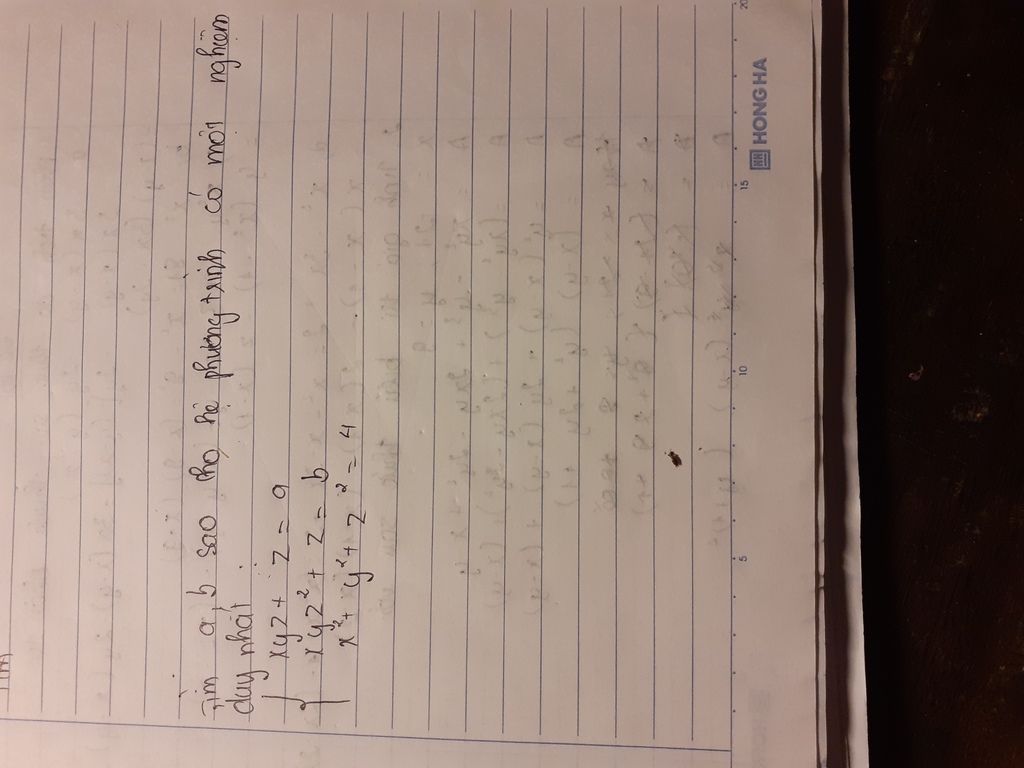 Tìm a, b sao cho hệ phương trình có một nghiệm
duy nhất
{ xyz + z = a
xyz² + z = b
x² + y² + z² = 4
HONG HA
5
10
15
20